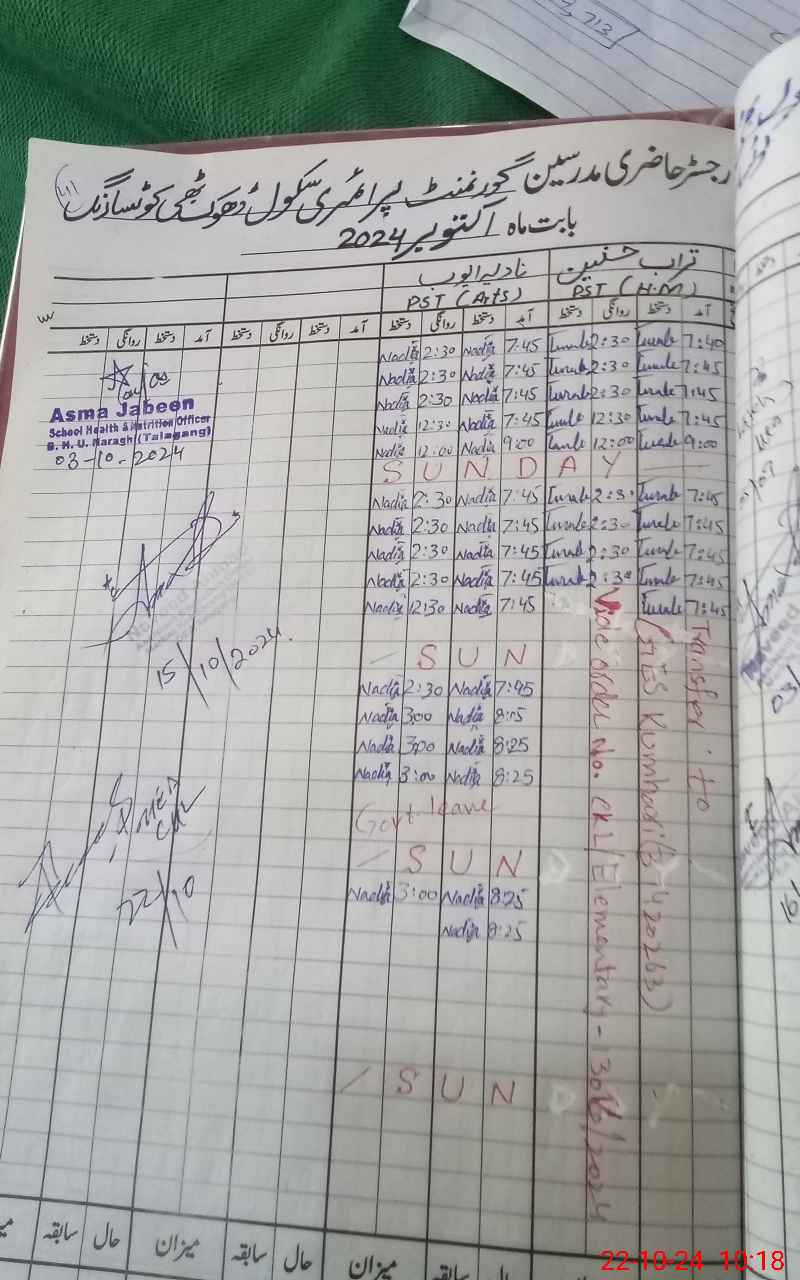 713
رجسٹر حاضری مدرسین گورنمنٹ پرائمری سکول ڈھوک بٹھی کوٹسارنگ
بابت ماہ اکتوبر 2024
تراب حسنین نادیہ ایوب
PST (H.M) PST (Arts)
آمد دستخط روانگی دستخط آمد دستخط روانگی دستخط آمد دستخط روانگی دستخط آمد دستخط روانگی دستخط
Nadia 2:30 Nadia 7:45 Turab 2:30 Turab 7:40
Nadia 2:30 Nadia 7:45 Turab 2:30 Turab 7:45
Nadia 2:30 Nadia 7:45 Turab 2:30 Turab 7:45
Nadia 12:30 Nadia 7:45 Turab 12:30 Turab 7:45
Nadia 12:00 Nadia 9:00 Turab 12:00 Turab 9:00
SUNDAY
Nadia 2:30 Nadia 7:45 Turab 2:30 Turab 7:45
Nadia 2:30 Nadia 7:45 Turab 2:30 Turab 7:45
Nadia 2:30 Nadia 7:45 Turab 2:30 Turab 7:45
Nadia 2:30 Nadia 7:45 Turab 2:30 Turab 7:45
Nadia 12:30 Nadia 7:45 Turab 7:45
SUN
Nadia 2:30 Nadia 7:45
Nadia 3:00 Nadia 8:15
Nadia 3:00 Nadia 8:25
Nadia 3:00 Nadia 8:25
Govt. leave
SUN
Nadia 3:00 Nadia 8:25
Nadia 8:25
SUN
Transfer to
(GES Kumhadi (37420263)
Vide order No. CKL/Elementary-13016/2024
Asma Jabeen
School Health & Nutrition Officer
B.H.U. Naragh (Talagang)
03-10-2024
15/10/2024.
22/10
میزان سابقہ حال میزان سابقہ حال
22-10-24 10:18